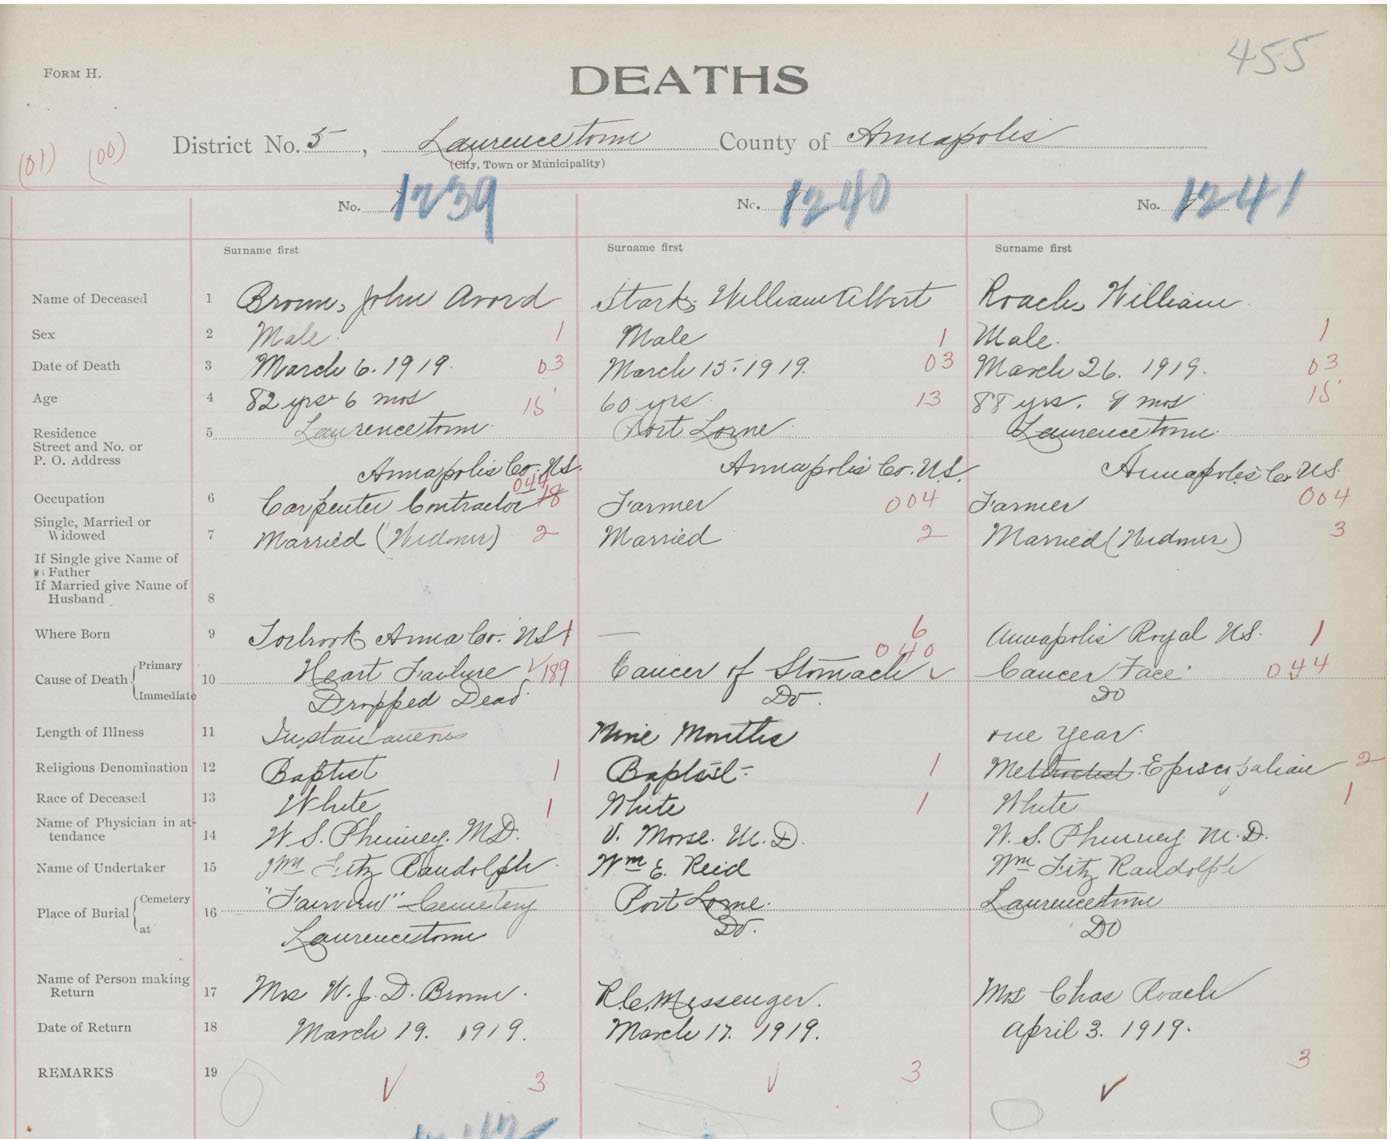 455
FORM H.
DEATHS
District No. 5, Laurencetown County of Annapolis
(City, Town or Municipality)
(01) (00)
No. 1239 No. 1240 No. 1241
Surname first Surname first Surname first
Name of Deceased 1 Brown, John Avord Stark, William Albert Roach, William
Sex 2 Male 1 Male 1 Male. 1
Date of Death 3 March 6. 1919. 03 March 15. 1919. 03 March 26. 1919. 03
Age 4 82 yrs 6 mos 15 60 yrs. 13 88 yrs. 9 mos 15
Residence 5 Laurencetown. Port Lorne Laurencetown.
Street and No. or
P. O. Address Annapolis Co. N.S. Annapolis Co. N.S. Annapolis Co N.S.
044
Occupation 6 Carpenter Contractor 18 Farmer 004 Farmer 004
Single, Married or
Widowed 7 Married (Widower) 2 Married 2 Married (Widower) 3
If Single give Name of
Father
If Married give Name of
Husband 8
Where Born 9 Torbrook Anna Co. N.S. 1 — 6 Annapolis Royal N.S. 1
Cause of Death Primary Immediate 10 Heart Failure ✓ 189 Cancer of Stomach ✓ 040 Cancer Face 044
Dropped Dead Do. Do
Length of Illness 11 Instantaneous Nine Months one Year.
Religious Denomination 12 Baptist 1 Baptist- 1 Methodist Episcopalian 2
Race of Deceased 13 White 1 White 1 White 1
Name of Physician in at-
tendance 14 W. S. Phinney. M.D. V. Morse. M.D. W. S. Phinney M.D.
Name of Undertaker 15 Wm Fitz Randolph Wm E. Reid Wm Fitz Randolph
Place of Burial Cemetery at 16 "Fairview" Cemetery Port Lorne. Laurencetown
Laurencetown Do. Do
Name of Person making
Return 17 Mrs W. J. D. Brown. R.C. Messenger. Mrs Chas Roach
Date of Return 18 March 19. 1919. March 17. 1919. April 3. 1919.
REMARKS 19 ✓ 3 ✓ 3 ✓ 3